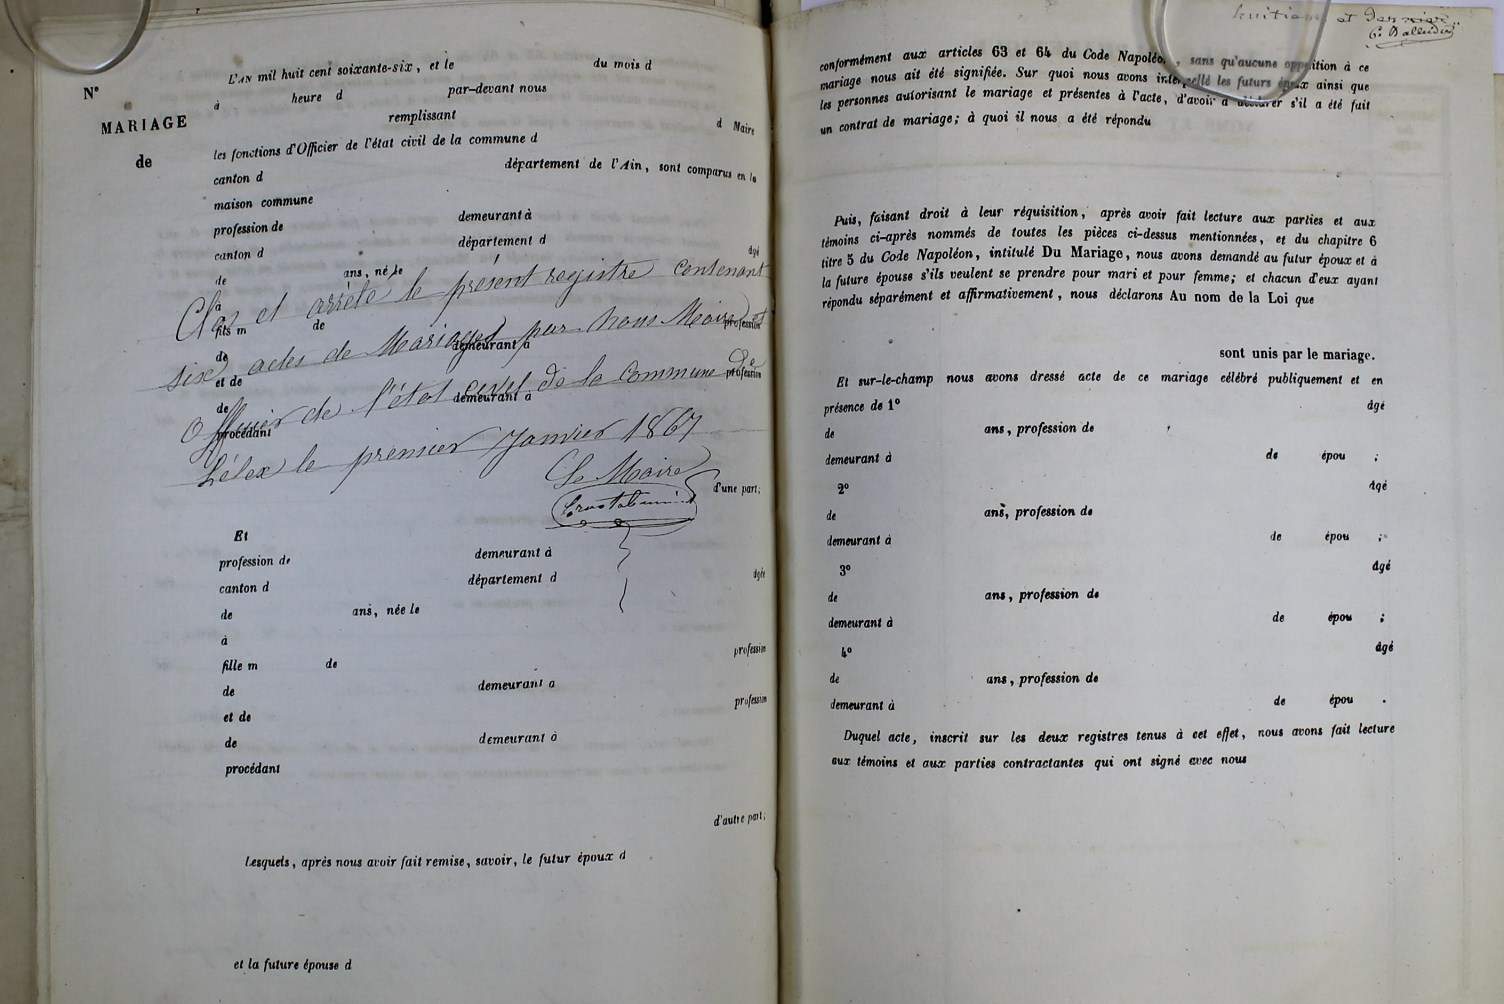 N°
MARIAGE
de
L'AN mil huit cent soixante-six, et le du mois d
à heure d par-devant nous
remplissant d Maire
les fonctions d'Officier de l'état civil de la commune d
canton d département de l'Ain, sont comparus en la
maison commune
profession de demeurant à
canton d département d âgé
de ans, né le
Clos et arrêté le présent registre contenant
à
fils m de profession
six actes de Mariages par nous Maire et
de demeurant à
et de profession
Officier de l'état civil de la commune de
de demeurant à
procédant
Lélex le premier Janvier 1867
Le Maire
d'une part;
Et
profession de demeurant à
canton d département d âgée
de ans, née le
à
fille m de profession
de demeurant à
et de profession
de demeurant à
procédant
d'autre part;
Lesquels, après nous avoir fait remise, savoir, le futur époux d
et la future épouse d
huitième et dernier
conformément aux articles 63 et 64 du Code Napoléon, sans qu'aucune opposition à ce
mariage nous ait été signifiée. Sur quoi nous avons interpellé les futurs époux ainsi que
les personnes autorisant le mariage et présentes à l'acte, d'avoir à déclarer s'il a été fait
un contrat de mariage; à quoi il nous a été répondu
Puis, faisant droit à leur réquisition, après avoir fait lecture aux parties et aux
témoins ci-après nommés de toutes les pièces ci-dessus mentionnées, et du chapitre 6
titre 5 du Code Napoléon, intitulé Du Mariage, nous avons demandé au futur époux et à
la future épouse s'ils veulent se prendre pour mari et pour femme; et chacun d'eux ayant
répondu séparément et affirmativement, nous déclarons Au nom de la Loi que
sont unis par le mariage.
Et sur-le-champ nous avons dressé acte de ce mariage célébré publiquement et en
présence de 1° âgé
de ans, profession de
demeurant à de épou ;
2° âgé
de ans, profession de
demeurant à de épou ;
3° âgé
de ans, profession de
demeurant à de épou ;
4° âgé
de ans, profession de
demeurant à de épou .
Duquel acte, inscrit sur les deux registres tenus à cet effet, nous avons fait lecture
aux témoins et aux parties contractantes qui ont signé avec nous